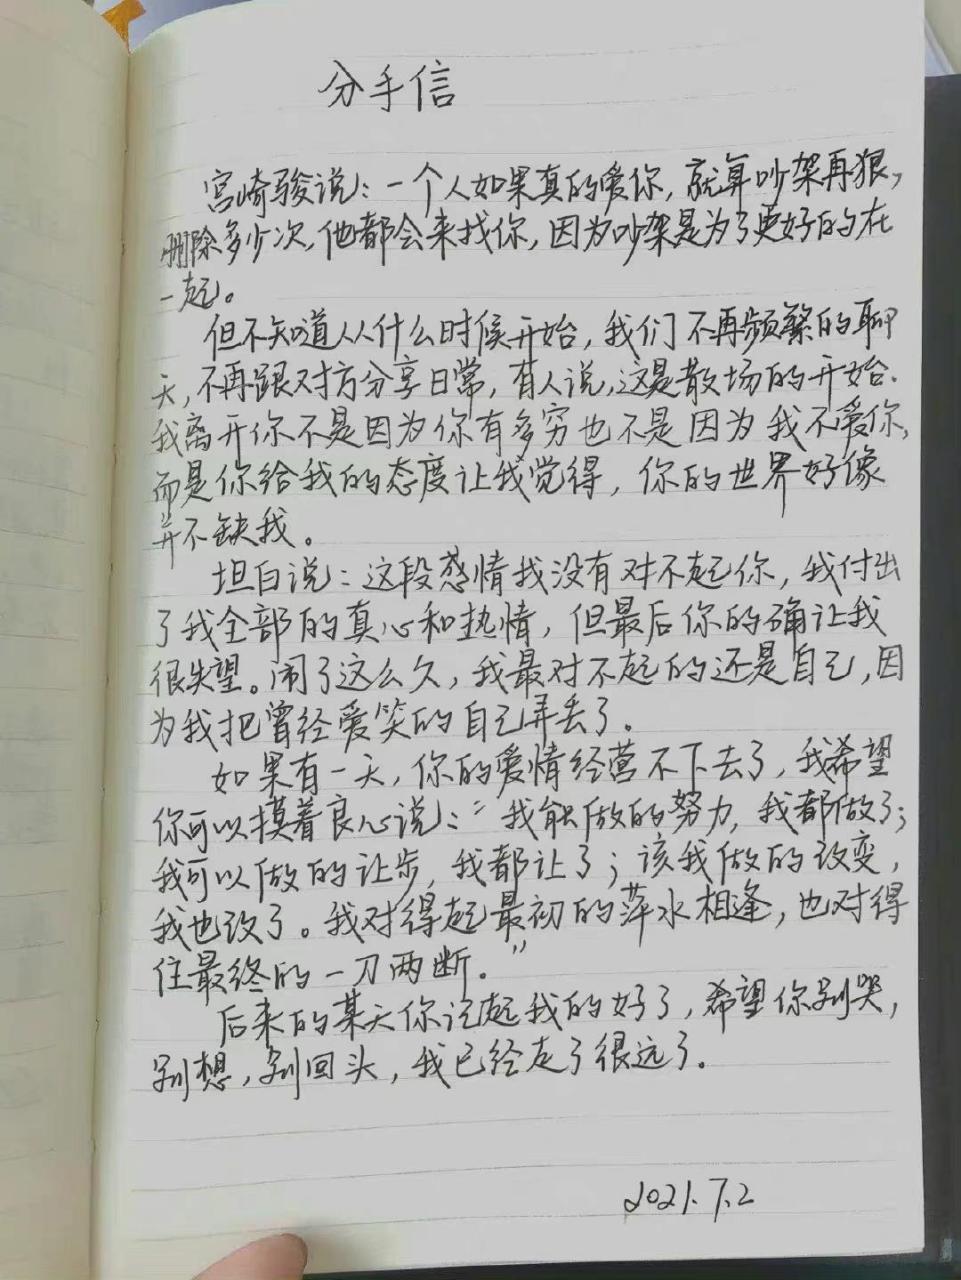 分手信
宫崎骏说：一个人如果真的爱你，就算吵架再狠，
删除多少次，他都会来找你，因为吵架是为了更好的在
一起。
但不知道从什么时候开始，我们不再频繁的聊
天，不再跟对方分享日常，有人说，这是散场的开始．
我离开你不是因为你有多穷也不是因为我不爱你，
而是你给我的态度让我觉得，你的世界好像
并不缺我。
坦白说：这段感情我没有对不起你，我付出
了我全部的真心和热情，但最后你的确让我
很失望。闹了这么久，我最对不起的还是自己，因
为我把曾经爱笑的自己弄丢了．
如果有一天，你的爱情经营不下去了，我希望
你可以摸着良心说：“我能做的努力，我都做了；
我可以做的让步，我都让了；该我做的改变，
我也改了。我对得起最初的萍水相逢，也对得
住最终的一刀两断．”
后来的某天你记起我的好了，希望你别哭，
别想，别回头，我已经走了很远了．
2021.7.2